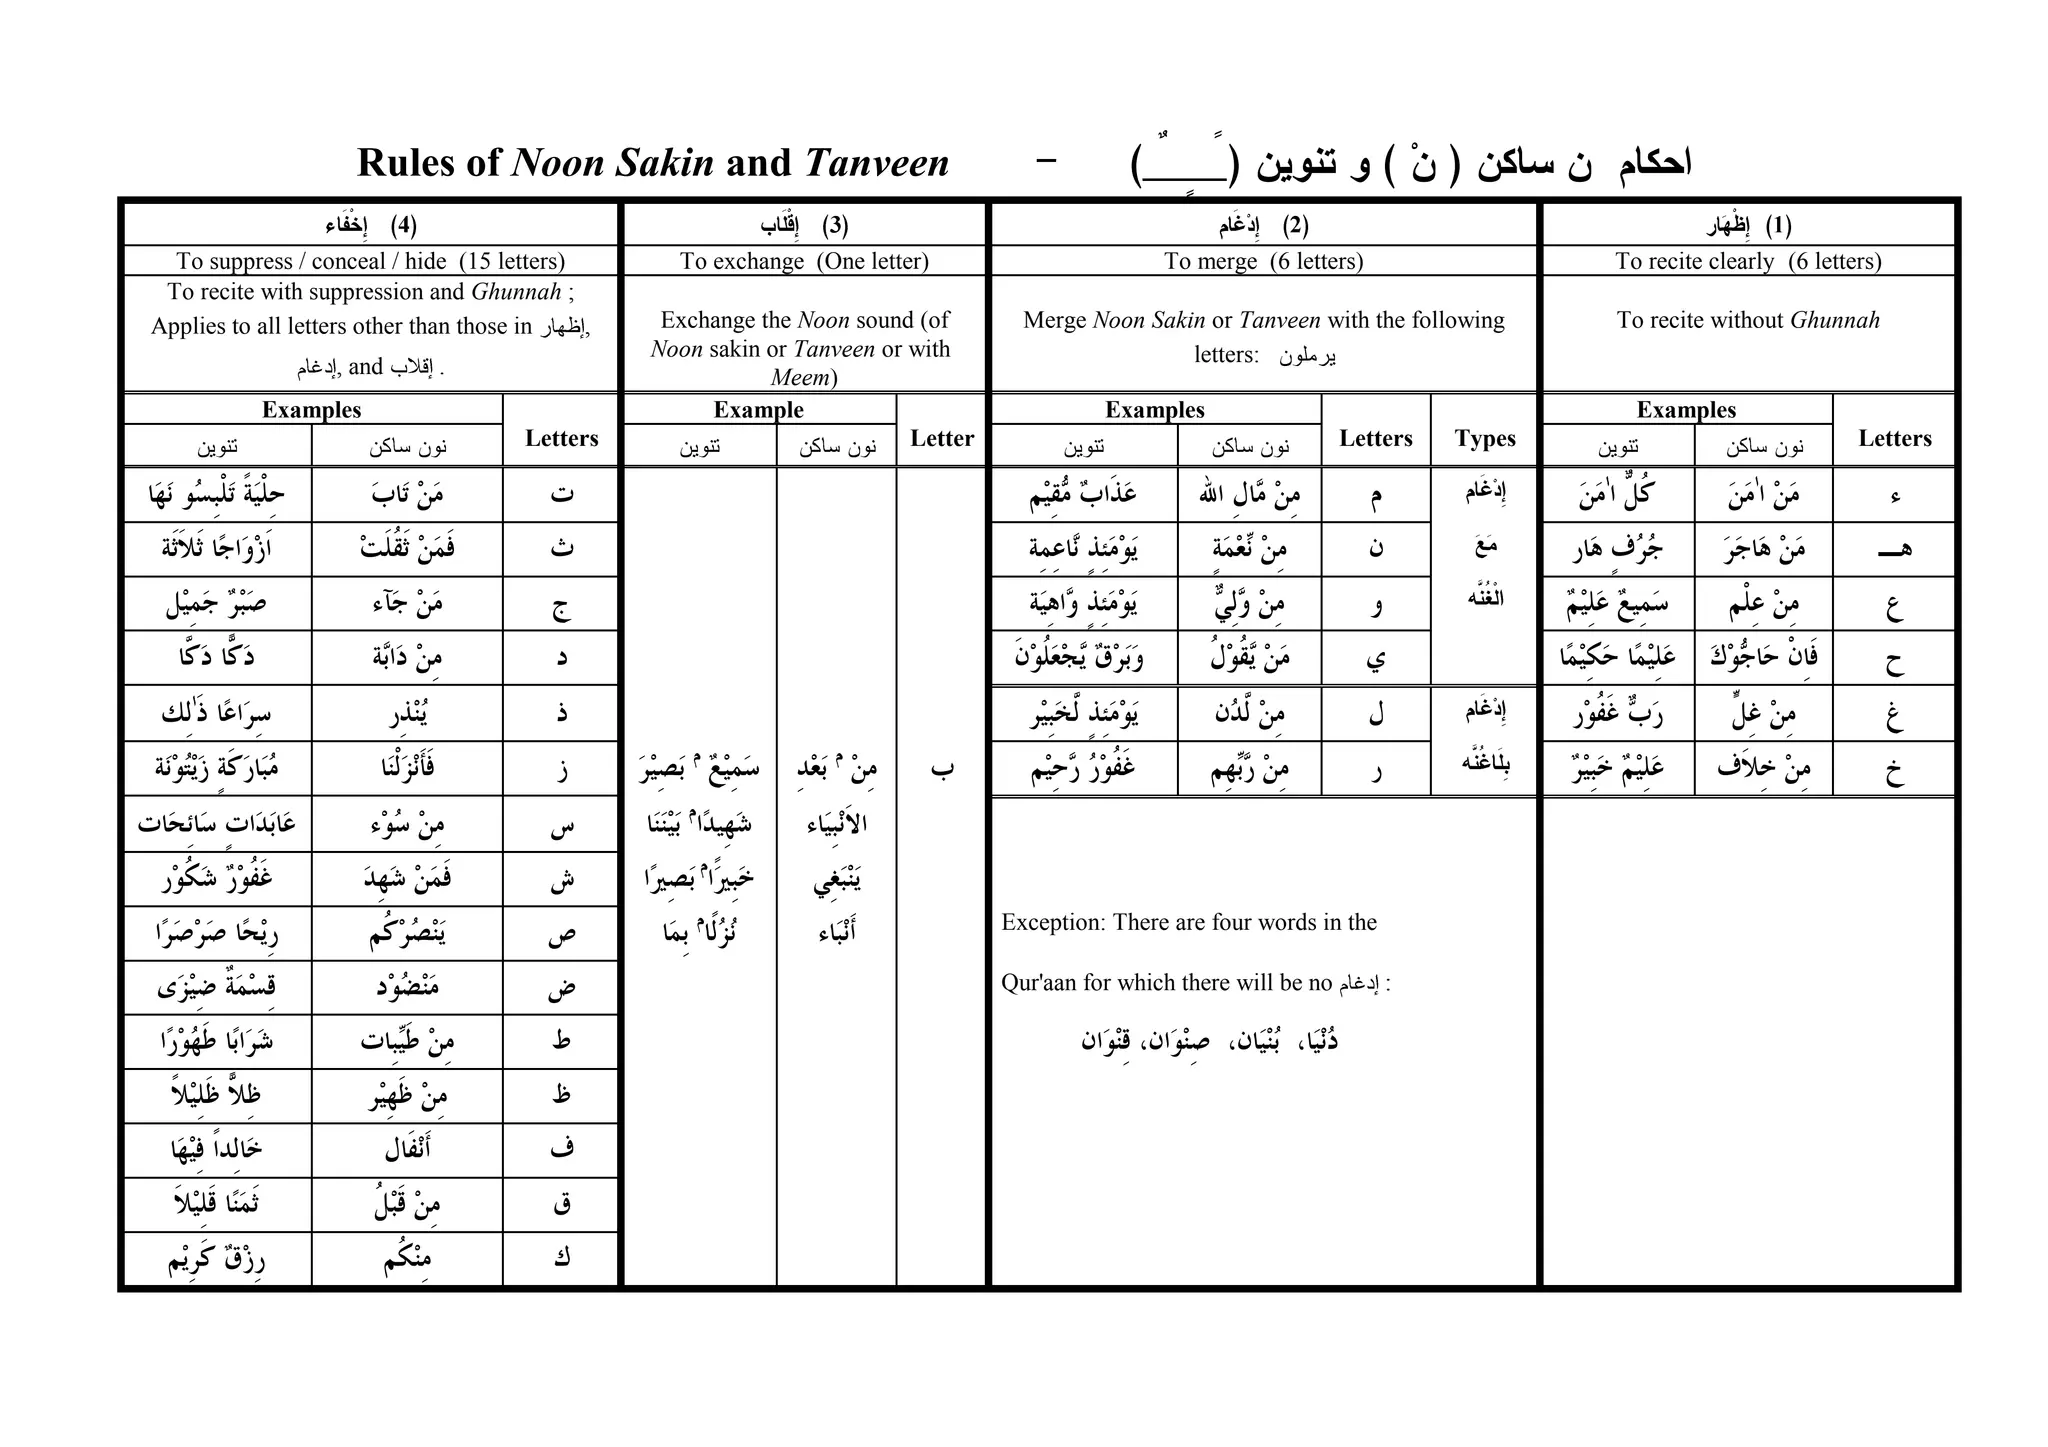 Rules of Noon Sakin and Tanveen – احكام ن ساكن ( نْ ) و تنوين (ـًـٍـٌ)
(1) إِظْهَار
To recite clearly (6 letters)
To recite without Ghunnah
Examples
Letters
نون ساكن
تنوين
ء مَنْ اٰمَنَ كُلٌّ اٰمَنَ
هـ مَنْ هَاجَرَ جُرُفٍ هَار
ع مِنْ عِلْم سَمِيعٌ عَلِيْمٌ
ح فَاِنْ حَاجُّوْكَ عَلِيْمًا حَكِيْمًا
غ مِنْ غِلٍّ رَبٌّ غَفُوْر
خ مِنْ خِلاَف عَلِيْمٌ خَبِيْرٌ
(2) إِدْغَام
To merge (6 letters)
Merge Noon Sakin or Tanveen with the following
letters: يرملون
Examples
Letters
Types
نون ساكن
تنوين
إِدْغَام
مَعَ
الْغُنَّه
م مِنْ مَّالِ الله عَذَابٌ مُّقِيْم
ن مِنْ نِّعْمَةٍ يَوْمَئِذٍ نَّاعِمِة
و مِنْ وَّلِيٍّ يَوْمَئِذٍ وَّاهِيَة
ي مَنْ يَّقُوْلُ وَبَرْقٌ يَّجْعَلُوْنَ
إِدْغَام
بِلَاغُنَّه
ل مِنْ لَّدُن يَوْمَئِذٍ لَّخَبِيْر
ر مِنْ رَّبِّهِم غَفُوْرٌ رَّحِيْم
Exception: There are four words in the
Qur'aan for which there will be no إدغام :
دُنْيَا، بُنْيَان، صِنْوَان، قِنْوَان
(3) إِقْلَاب
To exchange (One letter)
Exchange the Noon sound (of
Noon sakin or Tanveen or with
Meem)
Example
Letter
نون ساكن
تنوين
ب مِنْ ۢ بَعْدِ سَمِيْعٌ ۢ بَصِيْرَ
الاَنْبِيَاء شَهِيدًا ۢ بَيْنَنَا
يَنْبَغِي خَبِيرًا ۢ بَصِيرًا
أَنْبَاء نُزُلًا ۢ بِمَا
(4) إِخْفَاء
To suppress / conceal / hide (15 letters)
To recite with suppression and Ghunnah ;
Applies to all letters other than those in إظهار,
إدغام, and إقلاب .
Examples
Letters
نون ساكن
تنوين
ت مَنْ تَابَ حِلْيَةً تَلْبِسُو نَهَا
ث فَمَنْ ثَقُلَتْ اَزْوَاجًا ثَلاَثَة
ج مَنْ جَآء صَبْرٌ جَمِيْل
د مِنْ دَابَّة دَكًّا دَكَّا
ذ يُنْذِر سِرَاعًا ذَٰلِك
ز فَأَنْزَلْنَا مُبَارَكَةٍ زَيْتُوْنَة
س مِنْ سُوْء عَابَدَاتٍ سَائِحَات
ش فَمَنْ شَهِدَ غَفُوْرٌ شَكُوْر
ص يَنْصُرْكُم رِيْحًا صَرْصَرًا
ض مَنْضُوْد قِسْمَةٌ ضِيْزَى
ط مِنْ طَيِّبِات شَرَابًا طَهُوْرًا
ظ مِنْ ظَهِيْر ظِلاًّ ظَلِيْلاً
ف أَنْفَال خَالِداً فِيْهَا
ق مِنْ قَبْلُ ثَمَنًا قَلِيْلاَ
ك مِنْكُم رِزْقٌ كَرِيْم